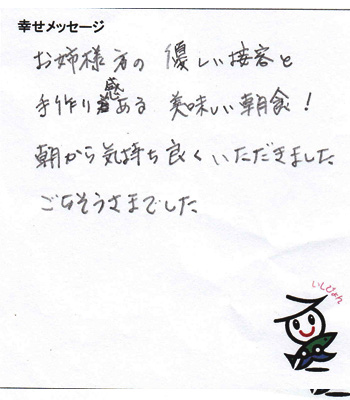 幸せメッセージ
お姉様方の 優しい接客と
手作り感ある 美味しい朝食!
朝から気持ち良くいただきました
ごちそうさまでした
いしぴょん